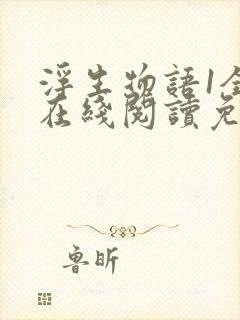 浮生物語1全
在綫閱讀免
魯昕